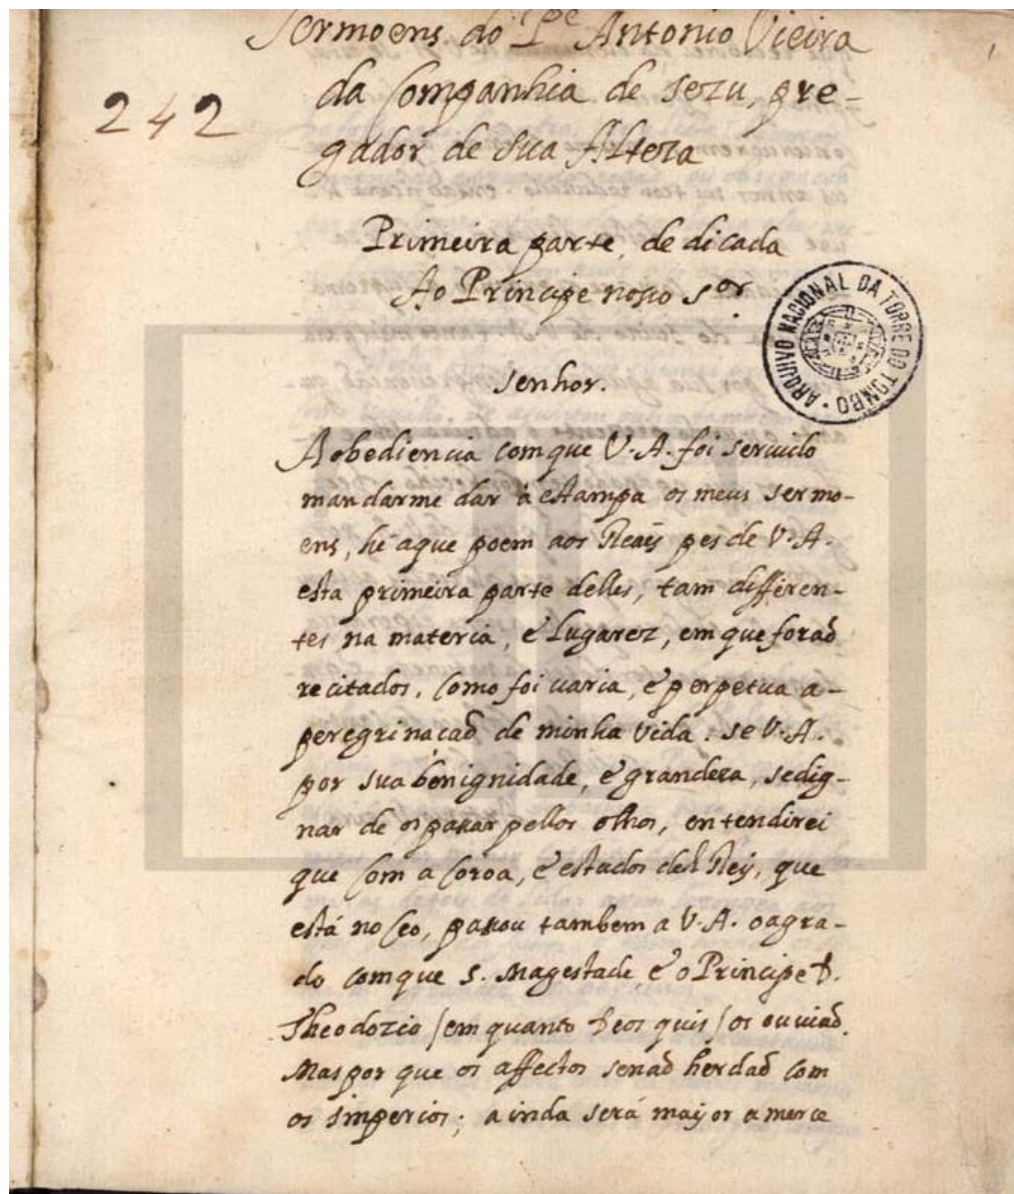 Sermoens do Pe Antonio Vieira
1
da Companhia de Jezu, pre-
242
gador de sua Alteza
Primeira parte, dedicada
Ao Principe nosso Sor.
ARQUIVO NACIONAL DA TORRE DO TOMBO
Senhor.
A obediencia com que V. A. foi servido
mandarme dar à estampa os meus sermo-
ens, hé a que poem aos Reaẽs pes de V. A.
esta primeira parte delles, tam differen-
tes na materia, e Lugarez, em que foraõ
recitados, como foi varia, e perpetua a-
peregrinaçaõ de minha vida. se V. A.
por sua benignidade, e grandeza, se dig-
nar de os passar pellos olhos, entendirei
que com a Coroa, e estados del Rey, que
está no Ceo, passou tambem a V. A. o agra-
do com que S. Magestade e o Principe D.
Theodozio (em quanto Deos quis) os ouviaõ.
Mas por que os affectos senaõ herdaõ com
os imperios; ainda será mayor a merce